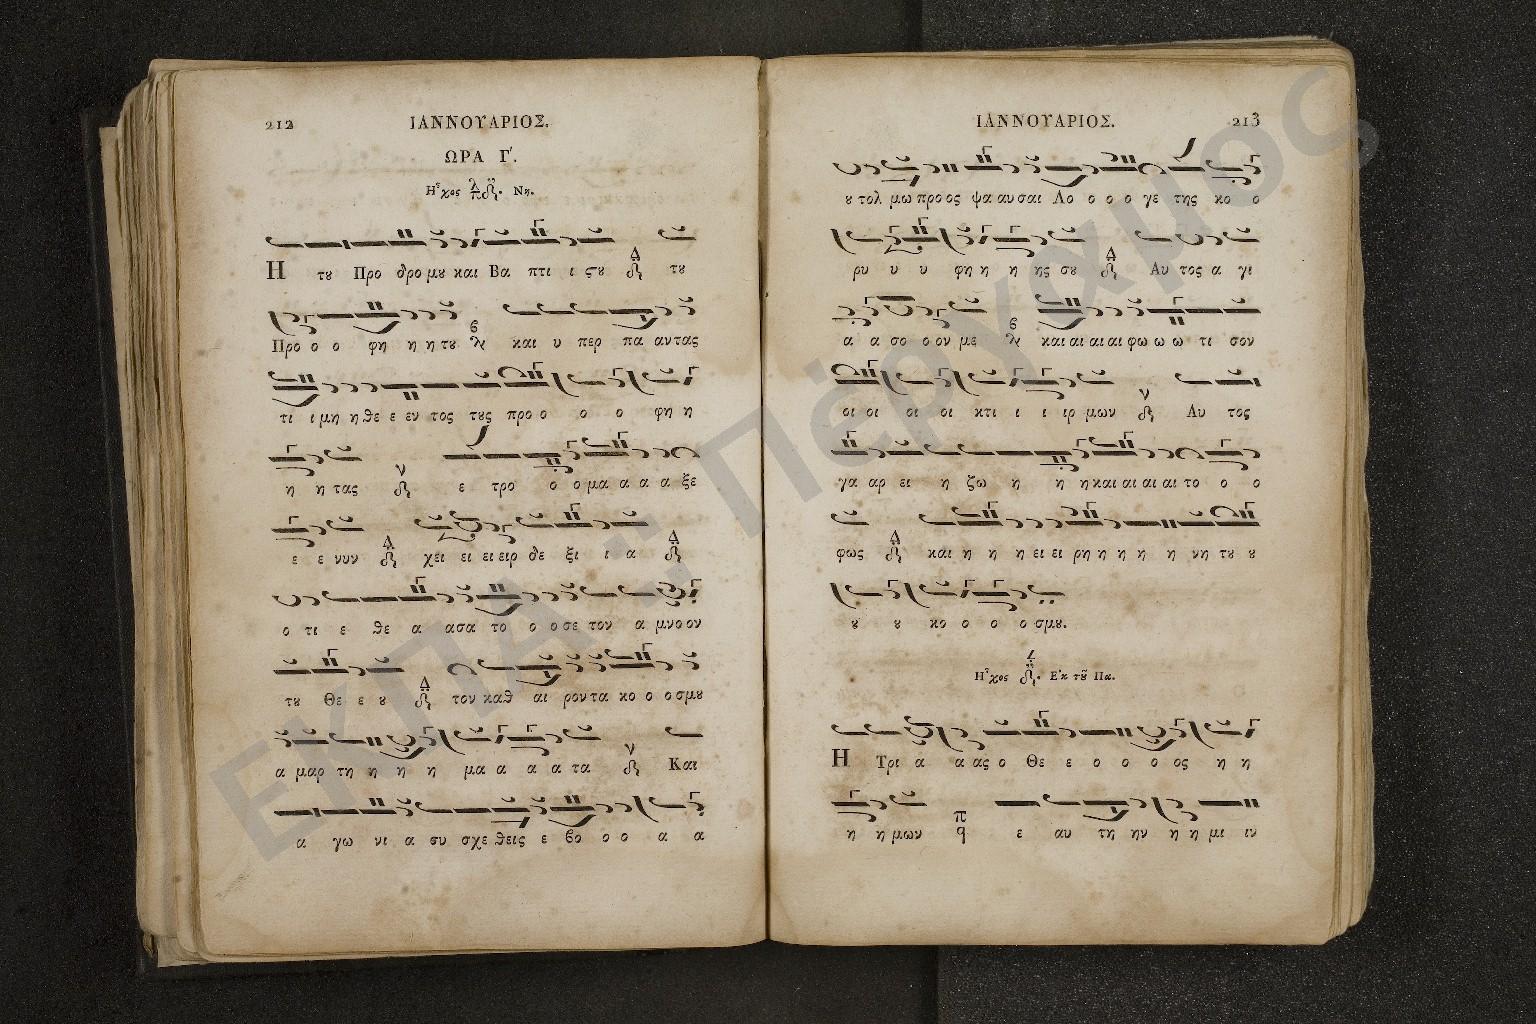 212
ΙΑΝΝΟΥΑΡΙΟΣ.
ΩΡΑ Γ'.
Ἦχος πλ δ. Νη.
Η τȣ Προ δρο μȣ και Βα πτι ι ϛȣ τȣ
Προ ο ο φη η η τȣ και υ περ πα αντας
τι ι μη η θε ε εν τος τȣς προ ο ο ο φη η
η η τας ε τρο ο ο μα α α α ξε
ε ε νυν χει ει ει ειρ δε ξι ι α
ο τι ε θε α ασα το ο ο σε τον α μνο ον
τȣ Θε ε ȣ τον καθ αι ροντα κο ο ο σμȣ
α μαρ τη η η η μα α α α τα Και
α γω νι α συ σχε θεις ε βο ο ο α α
ΕΚΠΑ :: Πέργαμος
ΙΑΝΝΟΥΑΡΙΟΣ.
213
ȣ τολ μω προ ος ψα αυσαι Λο ο ο ο γε της κο ο
ρυ υ υ φη η η ης σȣ Αυ τος α γι
α α σο ο ον με και αι αι αι φω ω ω τι σον
οι οι οι οι κτι ι ι ιρ μων Αυ τος
γα αρ ει η ζω η η η και αι αι αι το ο ο
φως και η η η ει ει ρη η η η η νη τȣ ȣ
ȣ ȣ κο ο ο ο σμȣ.
Ἦχος δ. Ἐκ τȣ͂ Πα.
Η Τρι α α ας ο Θε ε ο ο ο ος η η
η η μων ε αυ τη ην η η μι ιν